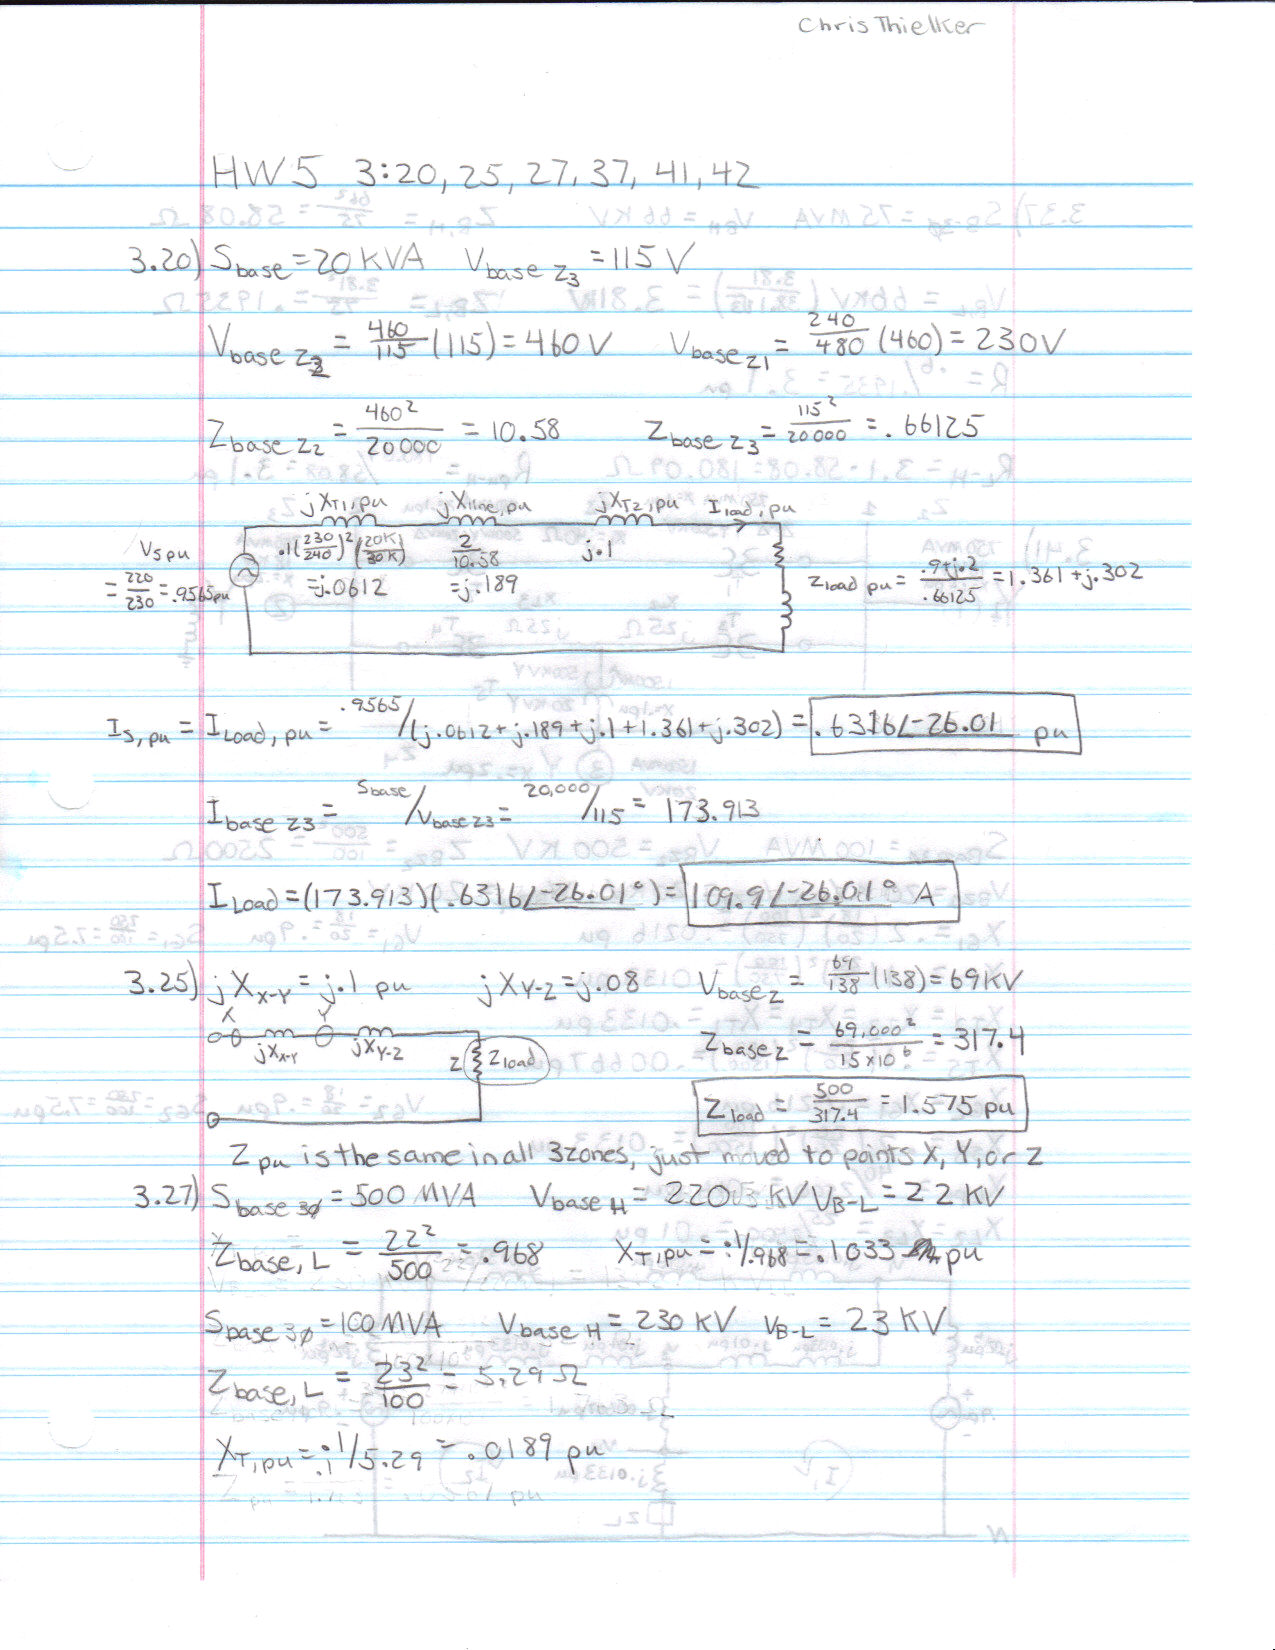 Chris Thielker
HW5 3:20, 25, 27, 37, 41, 42
3.20) Sbase = 20 KVA Vbase Z3 = 115 V
Vbase Z2 = 460/115 (115) = 460 V Vbase Z1 = 240/480 (460) = 230 V
Zbase Z2 = 460²/20000 = 10.58 Zbase Z3 = 115²/20000 = .66125
jXT1,pu jXline,pu jXT2,pu Iload,pu
Vs pu = 220/230 = .9565 pu
.1(230/240)²(20K/30K) = j.0612
2/10.58 = j.189
j.1
Zload pu = .9+j.2/.66125 = 1.361 + j.302
Is,pu = ILoad,pu = .9565/(j.0612 + j.189 + j.1 + 1.361 + j.302) = .6316∠-26.01 pu
Ibase Z3 = Sbase/Vbase Z3 = 20,000/115 = 173.913
ILoad = (173.913)(.6316∠-26.01°) = 109.9∠-26.01° A
3.25) jXX-Y = j.1 pu jXY-Z = j.08 Vbase Z = 69/138 (138) = 69 KV
X Y
jXX-Y jXY-Z
Z Zload
Zbase Z = 69,000²/15x10⁶ = 317.4
Zload = 500/317.4 = 1.575 pu
Zpu is the same in all 3 zones, just moved to points X, Y, or Z
3.27) Sbase 3ø = 500 MVA Vbase H = 220 KV VB-L = 22 KV
Zbase, L = 22²/500 = .968 XT,pu = .1/.968 = .1033 pu
Sbase 3ø = 100 MVA Vbase H = 230 KV VB-L = 23 KV
Zbase, L = 23²/100 = 5.29 Ω
XT,pu = .1/5.29 = .0189 pu